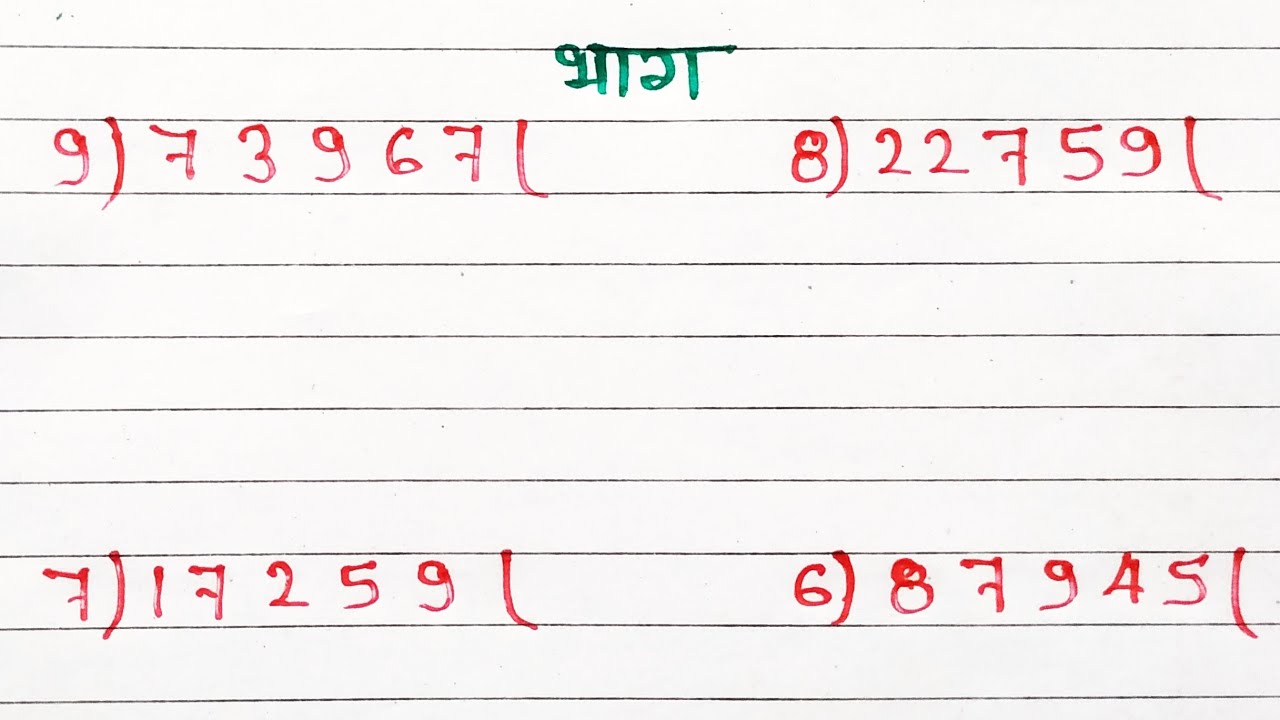 भाग
9) 73967 (
8) 22759 (
7) 17259 (
6) 87945 (